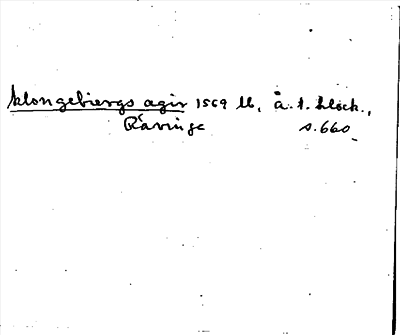 klongebiergs agir 1569 lb, å. t. block.,
Rävinge s. 660